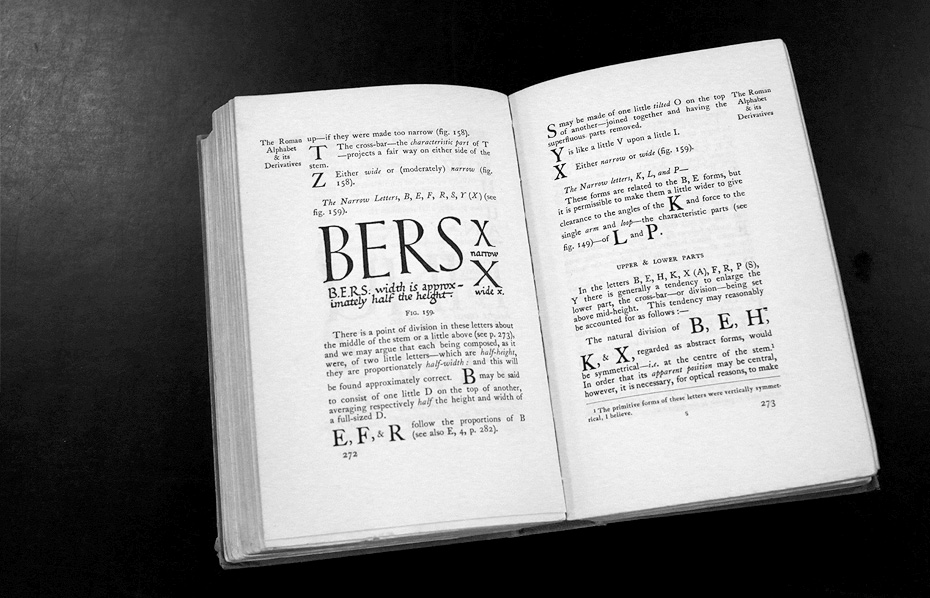 The Roman
Alphabet
& its
Derivatives
up—if they were made too narrow (fig. 158).
T The cross-bar—the characteristic part of T
—projects a fair way on either side of the
stem.
Z Either wide or (moderately) narrow (fig.
158).
The Narrow Letters, B, E, F, R, S, Y (X) (see
fig. 159).
BERS X
narrow
X
wide x.
B.E.R.S: width is approx-
imately half the height.
Fig. 159.
There is a point of division in these letters about
the middle of the stem or a little above (see p. 273),
and we may argue that each being composed, as it
were, of two little letters—which are half-height,
they are proportionately half-width: and this will
be found approximately correct. B may be said
to consist of one little D on the top of another,
averaging respectively half the height and width of
a full-sized D.
E, F, & R follow the proportions of B
(see also E, 4, p. 282).
272
The Roman
Alphabet
& its
Derivatives
S may be made of one little tilted O on the top
of another—joined together and having the
superfluous parts removed.
Y is like a little V upon a little I.
X Either narrow or wide (fig. 159).
The Narrow letters, K, L, and P—
These forms are related to the B, E forms, but
it is permissible to make them a little wider to give
clearance to the angles of the K and force to the
single arm and loop—the characteristic parts (see
fig. 149)—of L and P.
UPPER & LOWER PARTS
In the letters B, E, H, K, X (A), F, R, P (S),
Y there is generally a tendency to enlarge the
lower part, the cross-bar—or division—being set
above mid-height. This tendency may reasonably
be accounted for as follows:—
The natural division of B, E, H,¹
K, & X, regarded as abstract forms, would
be symmetrical—i.e. at the centre of the stem.¹
In order that its apparent position may be central,
however, it is necessary, for optical reasons, to make
¹ The primitive forms of these letters were vertically symmet-
rical, I believe.
s
273